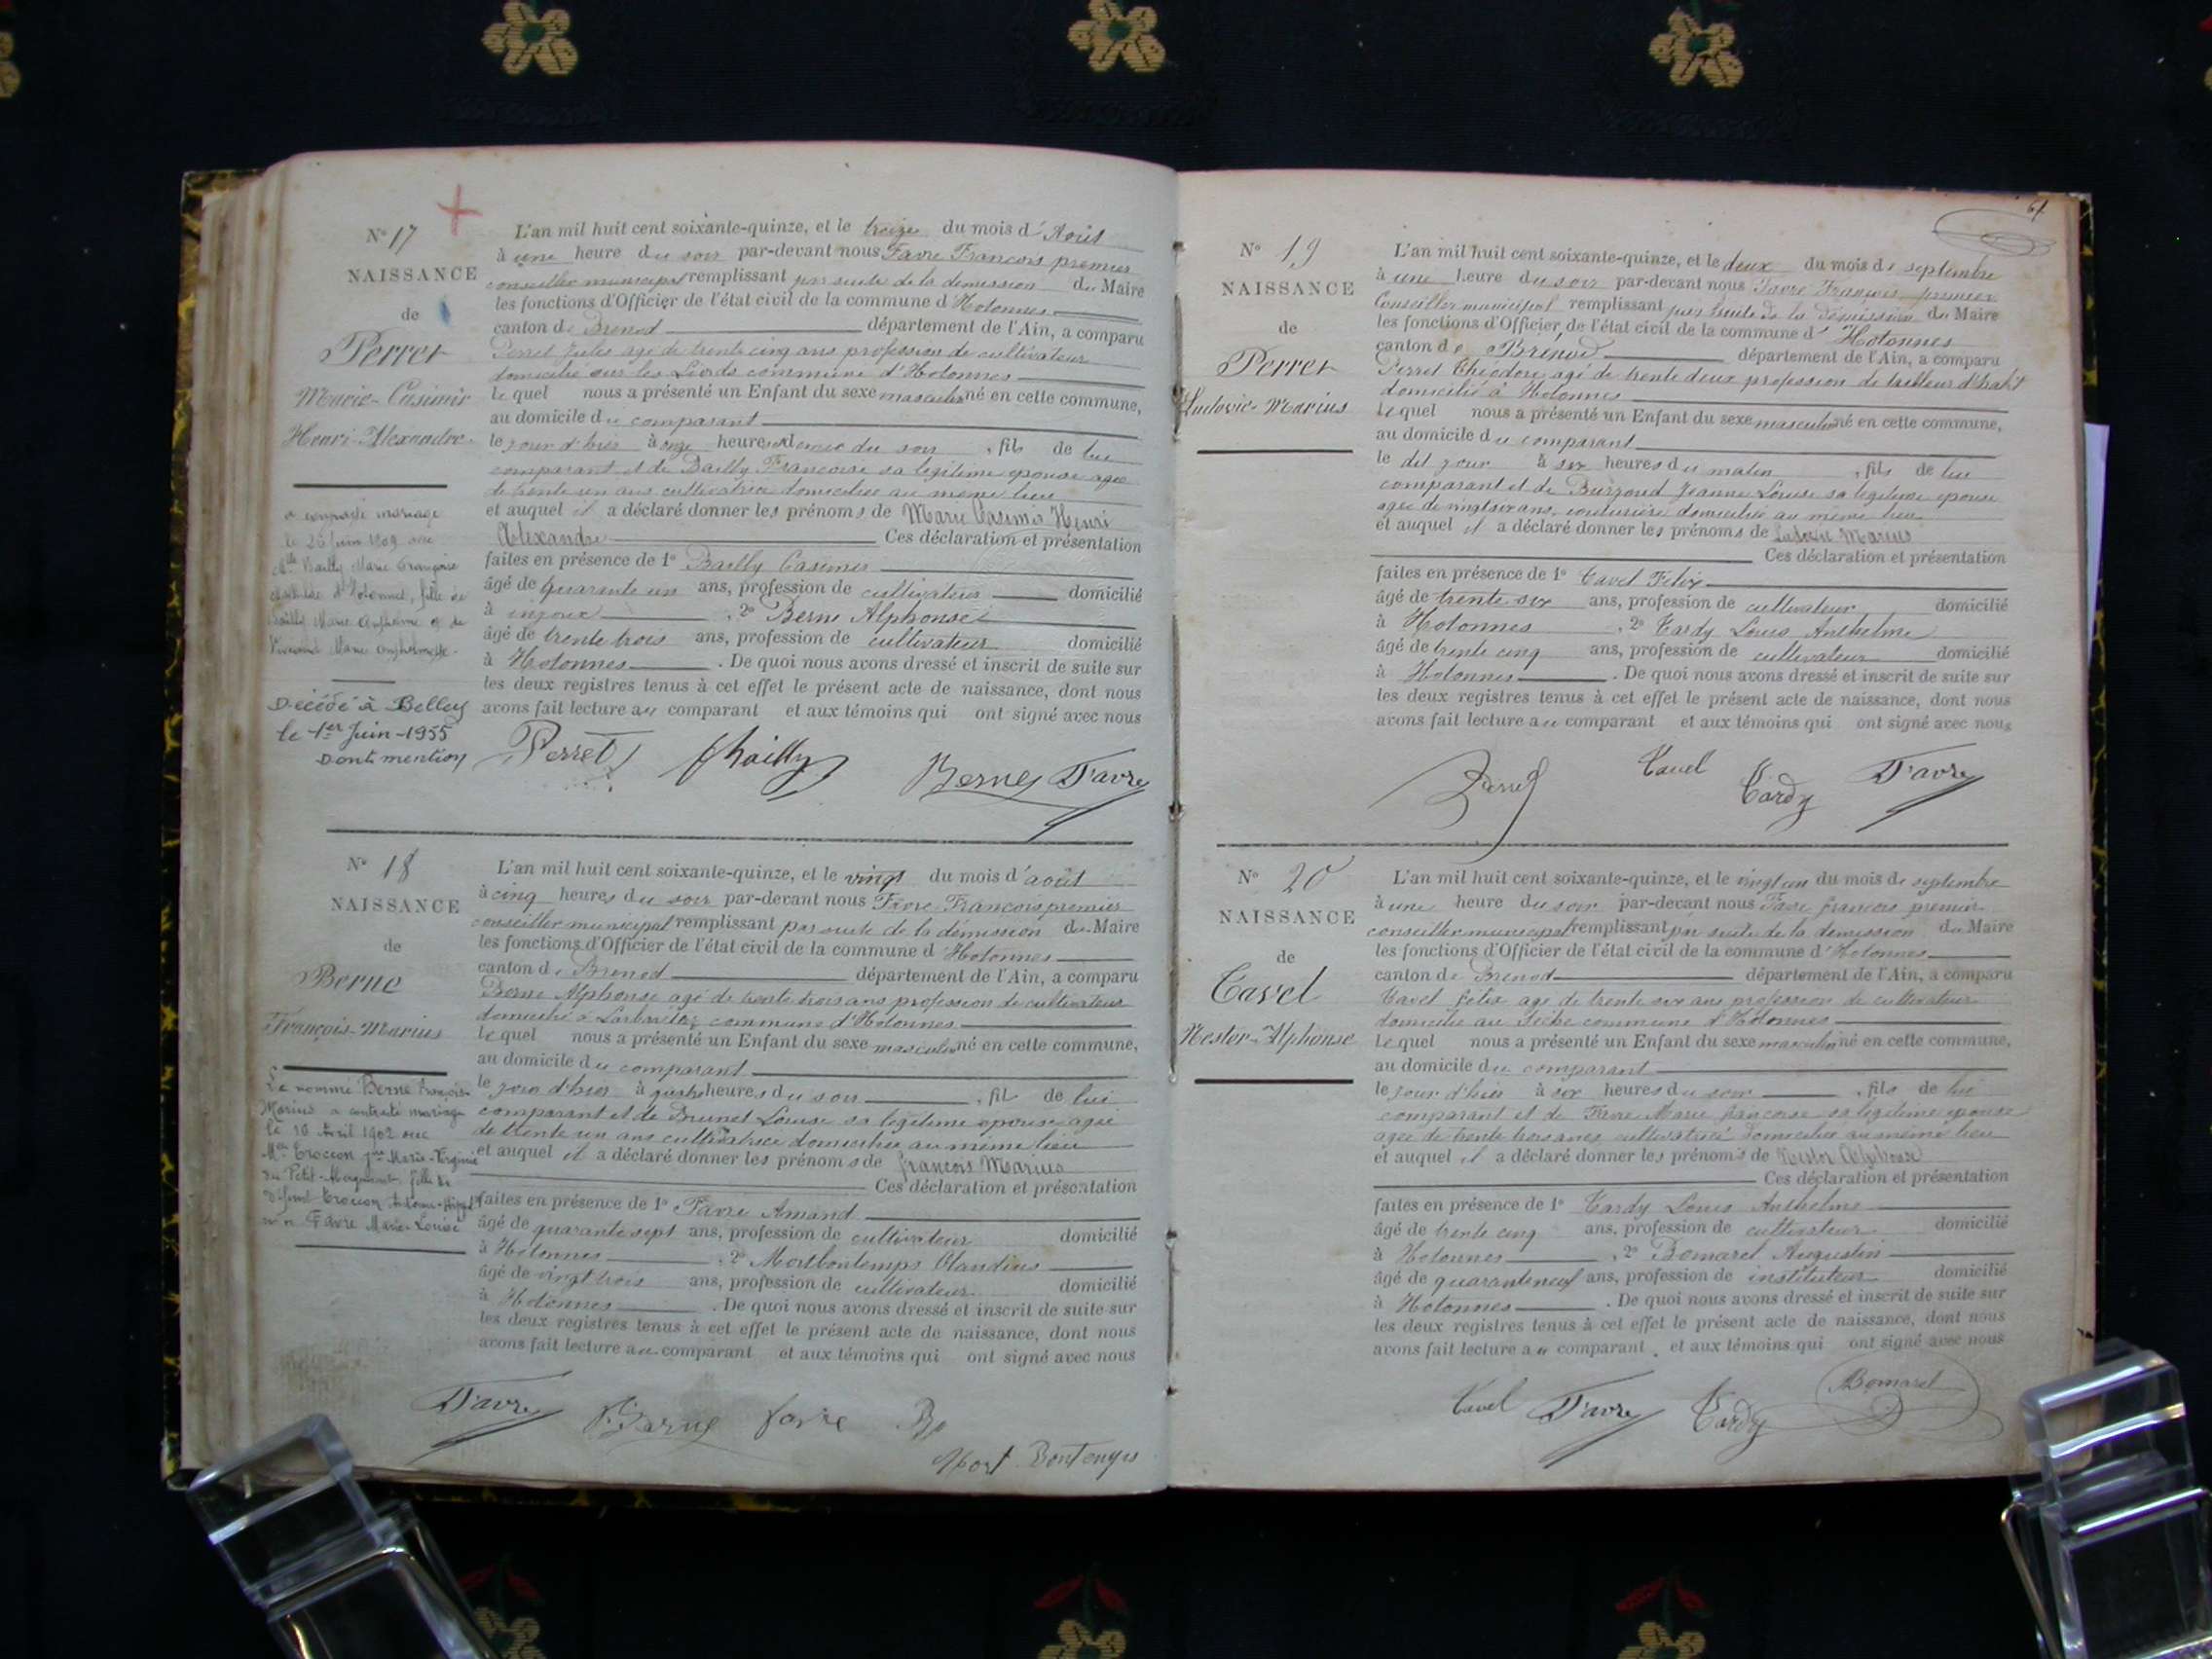 N° 17
NAISSANCE
de
Perret
Marie-Casimir
Henri-Alexandre
a contracté mariage
le 26 Juin 1909 avec
Mlle Bailly Marie Françoise
d'Hotonnes, fille de
Bailly Marie Anthelme et de
Marie
Décédé à Belley
le 1er Juin-1955
Dont mention
L'an mil huit cent soixante-quinze, et le treize du mois d'Août
à une heure du soir par-devant nous Favre François premier
conseiller municipal remplissant par suite de la démission du Maire
les fonctions d'Officier de l'état civil de la commune d'Hotonnes
canton de Brenod département de l'Ain, a comparu
Perret Jules agé de trente cinq ans profession de cultivateur
domicilié sur les commune d'Hotonnes
Lequel nous a présenté un Enfant du sexe masculin né en cette commune,
au domicile du comparant
le jour d'hier à onze heures demie du soir, fils de lui
comparant et de Bailly Françoise sa légitime épouse agée
de trente un ans cultivatrice domiciliée au même lieu
et auquel il a déclaré donner les prénoms de Marie Casimir Henri
Alexandre Ces déclaration et présentation
faites en présence de 1° Bailly Casimir
âgé de quarante un ans, profession de cultivateur domicilié
à injoux, 2° Berne Alphonse
âgé de trente trois ans, profession de cultivateur domicilié
à Hotonnes. De quoi nous avons dressé et inscrit de suite sur
les deux registres tenus à cet effet le présent acte de naissance, dont nous
avons fait lecture au comparant et aux témoins qui ont signé avec nous
Perret Bailly Berne Favre
N° 18
NAISSANCE
de
Berne
François-Marius
Le nommé Berne François-
Marius a contracté mariage
le 16 Avril 1902 avec
Marie-Virginie
du Petit- fille de
défunt
et de Favre Marie-Louise
L'an mil huit cent soixante-quinze, et le vingt du mois d'août
à cinq heures du soir par-devant nous Favre François premier
conseiller municipal remplissant par suite de la démission du Maire
les fonctions d'Officier de l'état civil de la commune d'Hotonnes
canton de Brenod département de l'Ain, a comparu
Berne Alphonse agé de trente trois ans profession de cultivateur
domicilié à commune d'Hotonnes
Lequel nous a présenté un Enfant du sexe masculin né en cette commune,
au domicile du comparant
le jour d'hier à quatre heures du soir, fils de lui
comparant et de Brunet Louise sa légitime épouse agée
de trente un ans cultivatrice domiciliée au même lieu
et auquel il a déclaré donner les prénoms de françois Marius
Ces déclaration et présentation
faites en présence de 1° Favre Amand
âgé de quarante sept ans, profession de cultivateur domicilié
à Hotonnes, 2° Mortbontemps Claudius
âgé de vingt trois ans, profession de cultivateur domicilié
à Hotonnes. De quoi nous avons dressé et inscrit de suite sur
les deux registres tenus à cet effet le présent acte de naissance, dont nous
avons fait lecture au comparant et aux témoins qui ont signé avec nous
Favre Berne favre Bo
Mort Bontemps
61
N° 19
NAISSANCE
de
Perret
Ludovic-Marius
L'an mil huit cent soixante-quinze, et le deux du mois de septembre
à une heure du soir par-devant nous Favre François premier
Conseiller municipal remplissant par suite de la démission du Maire
les fonctions d'Officier de l'état civil de la commune d'Hotonnes
canton de Brénod département de l'Ain, a comparu
Perret Théodore agé de trente deux profession de tailleur d'habit
domicilié à Hotonnes
Lequel nous a présenté un Enfant du sexe masculin né en cette commune,
au domicile du comparant
le dit jour à six heures du matin, fils de lui
comparant et de Jeanne Louise sa légitime épouse
agée de vingt six ans, couturière domiciliée au même lieu
et auquel il a déclaré donner les prénoms de Ludovic Marius
Ces déclaration et présentation
faites en présence de 1° Cavel Félix
âgé de trente six ans, profession de cultivateur domicilié
à Hotonnes, 2° Tardy Louis Anthelme
âgé de trente cinq ans, profession de cultivateur domicilié
à Hotonnes. De quoi nous avons dressé et inscrit de suite sur
les deux registres tenus à cet effet le présent acte de naissance, dont nous
avons fait lecture au comparant et aux témoins qui ont signé avec nous
Perret Cavel Tardy Favre
N° 20
NAISSANCE
de
Cavel
Nestor-Alphonse
L'an mil huit cent soixante-quinze, et le vingt un du mois de septembre
à une heure du soir par-devant nous Favre françois premier
conseiller municipal remplissant par suite de la démission du Maire
les fonctions d'Officier de l'état civil de la commune d'Hotonnes
canton de Brenod département de l'Ain, a comparu
Cavel félix agé de trente six ans profession de cultivateur
domicilié au commune d'Hotonnes
Lequel nous a présenté un Enfant du sexe masculin né en cette commune,
au domicile du comparant
le jour d'hier à six heures du soir, fils de lui
comparant et de Favre Marie françoise sa légitime épouse
agée de trente trois ans cultivatrice domiciliée au même lieu
et auquel il a déclaré donner les prénoms de Nestor Alphonse
Ces déclaration et présentation
faites en présence de 1° Tardy Louis Anthelme
âgé de trente cinq ans, profession de cultivateur domicilié
à Hotonnes, 2° Bomarel Augustin
âgé de quarante neuf ans, profession de instituteur domicilié
à Hotonnes. De quoi nous avons dressé et inscrit de suite sur
les deux registres tenus à cet effet le présent acte de naissance, dont nous
avons fait lecture au comparant et aux témoins qui ont signé avec nous
Cavel Favre Tardy Bomarel